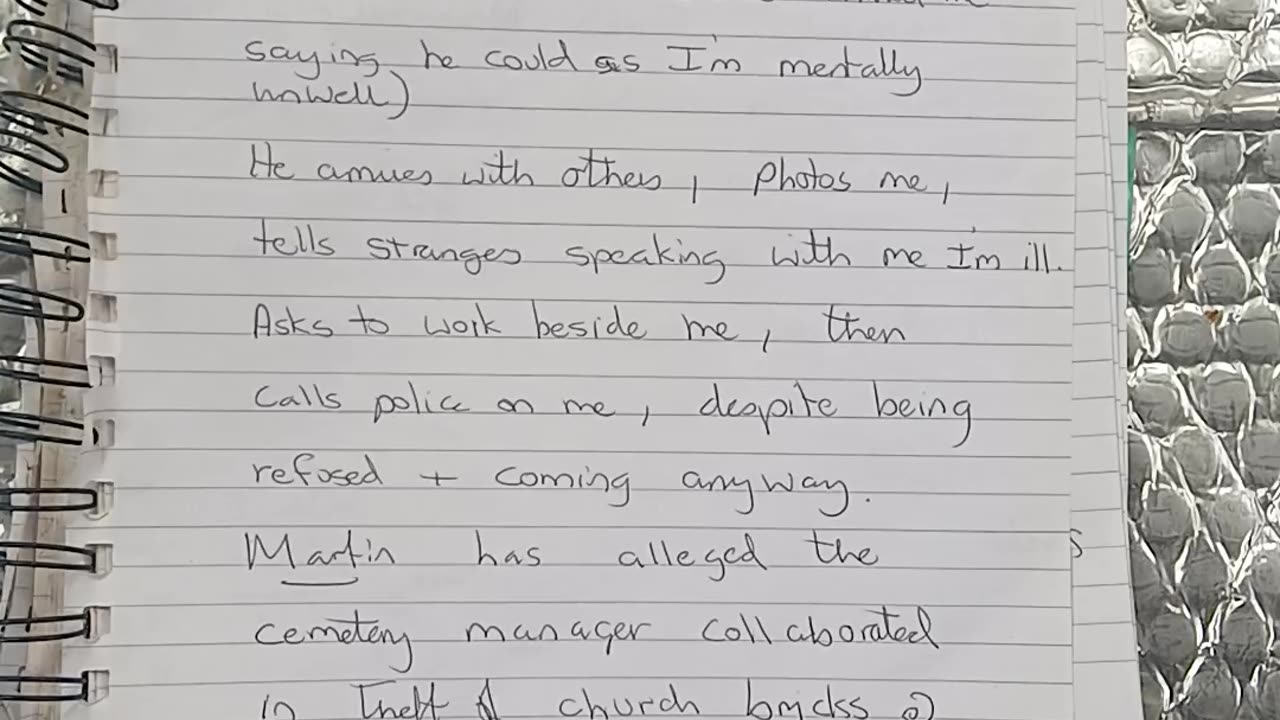 saying he could as I'm mentally
unwell)
He arrives with others, photos me,
tells stranges speaking with me I'm ill.
Asks to work beside me, then
calls police on me, despite being
refused + coming anyway.
Martin has alleged the
cemetery manager collaborated
in theft of church bricks @